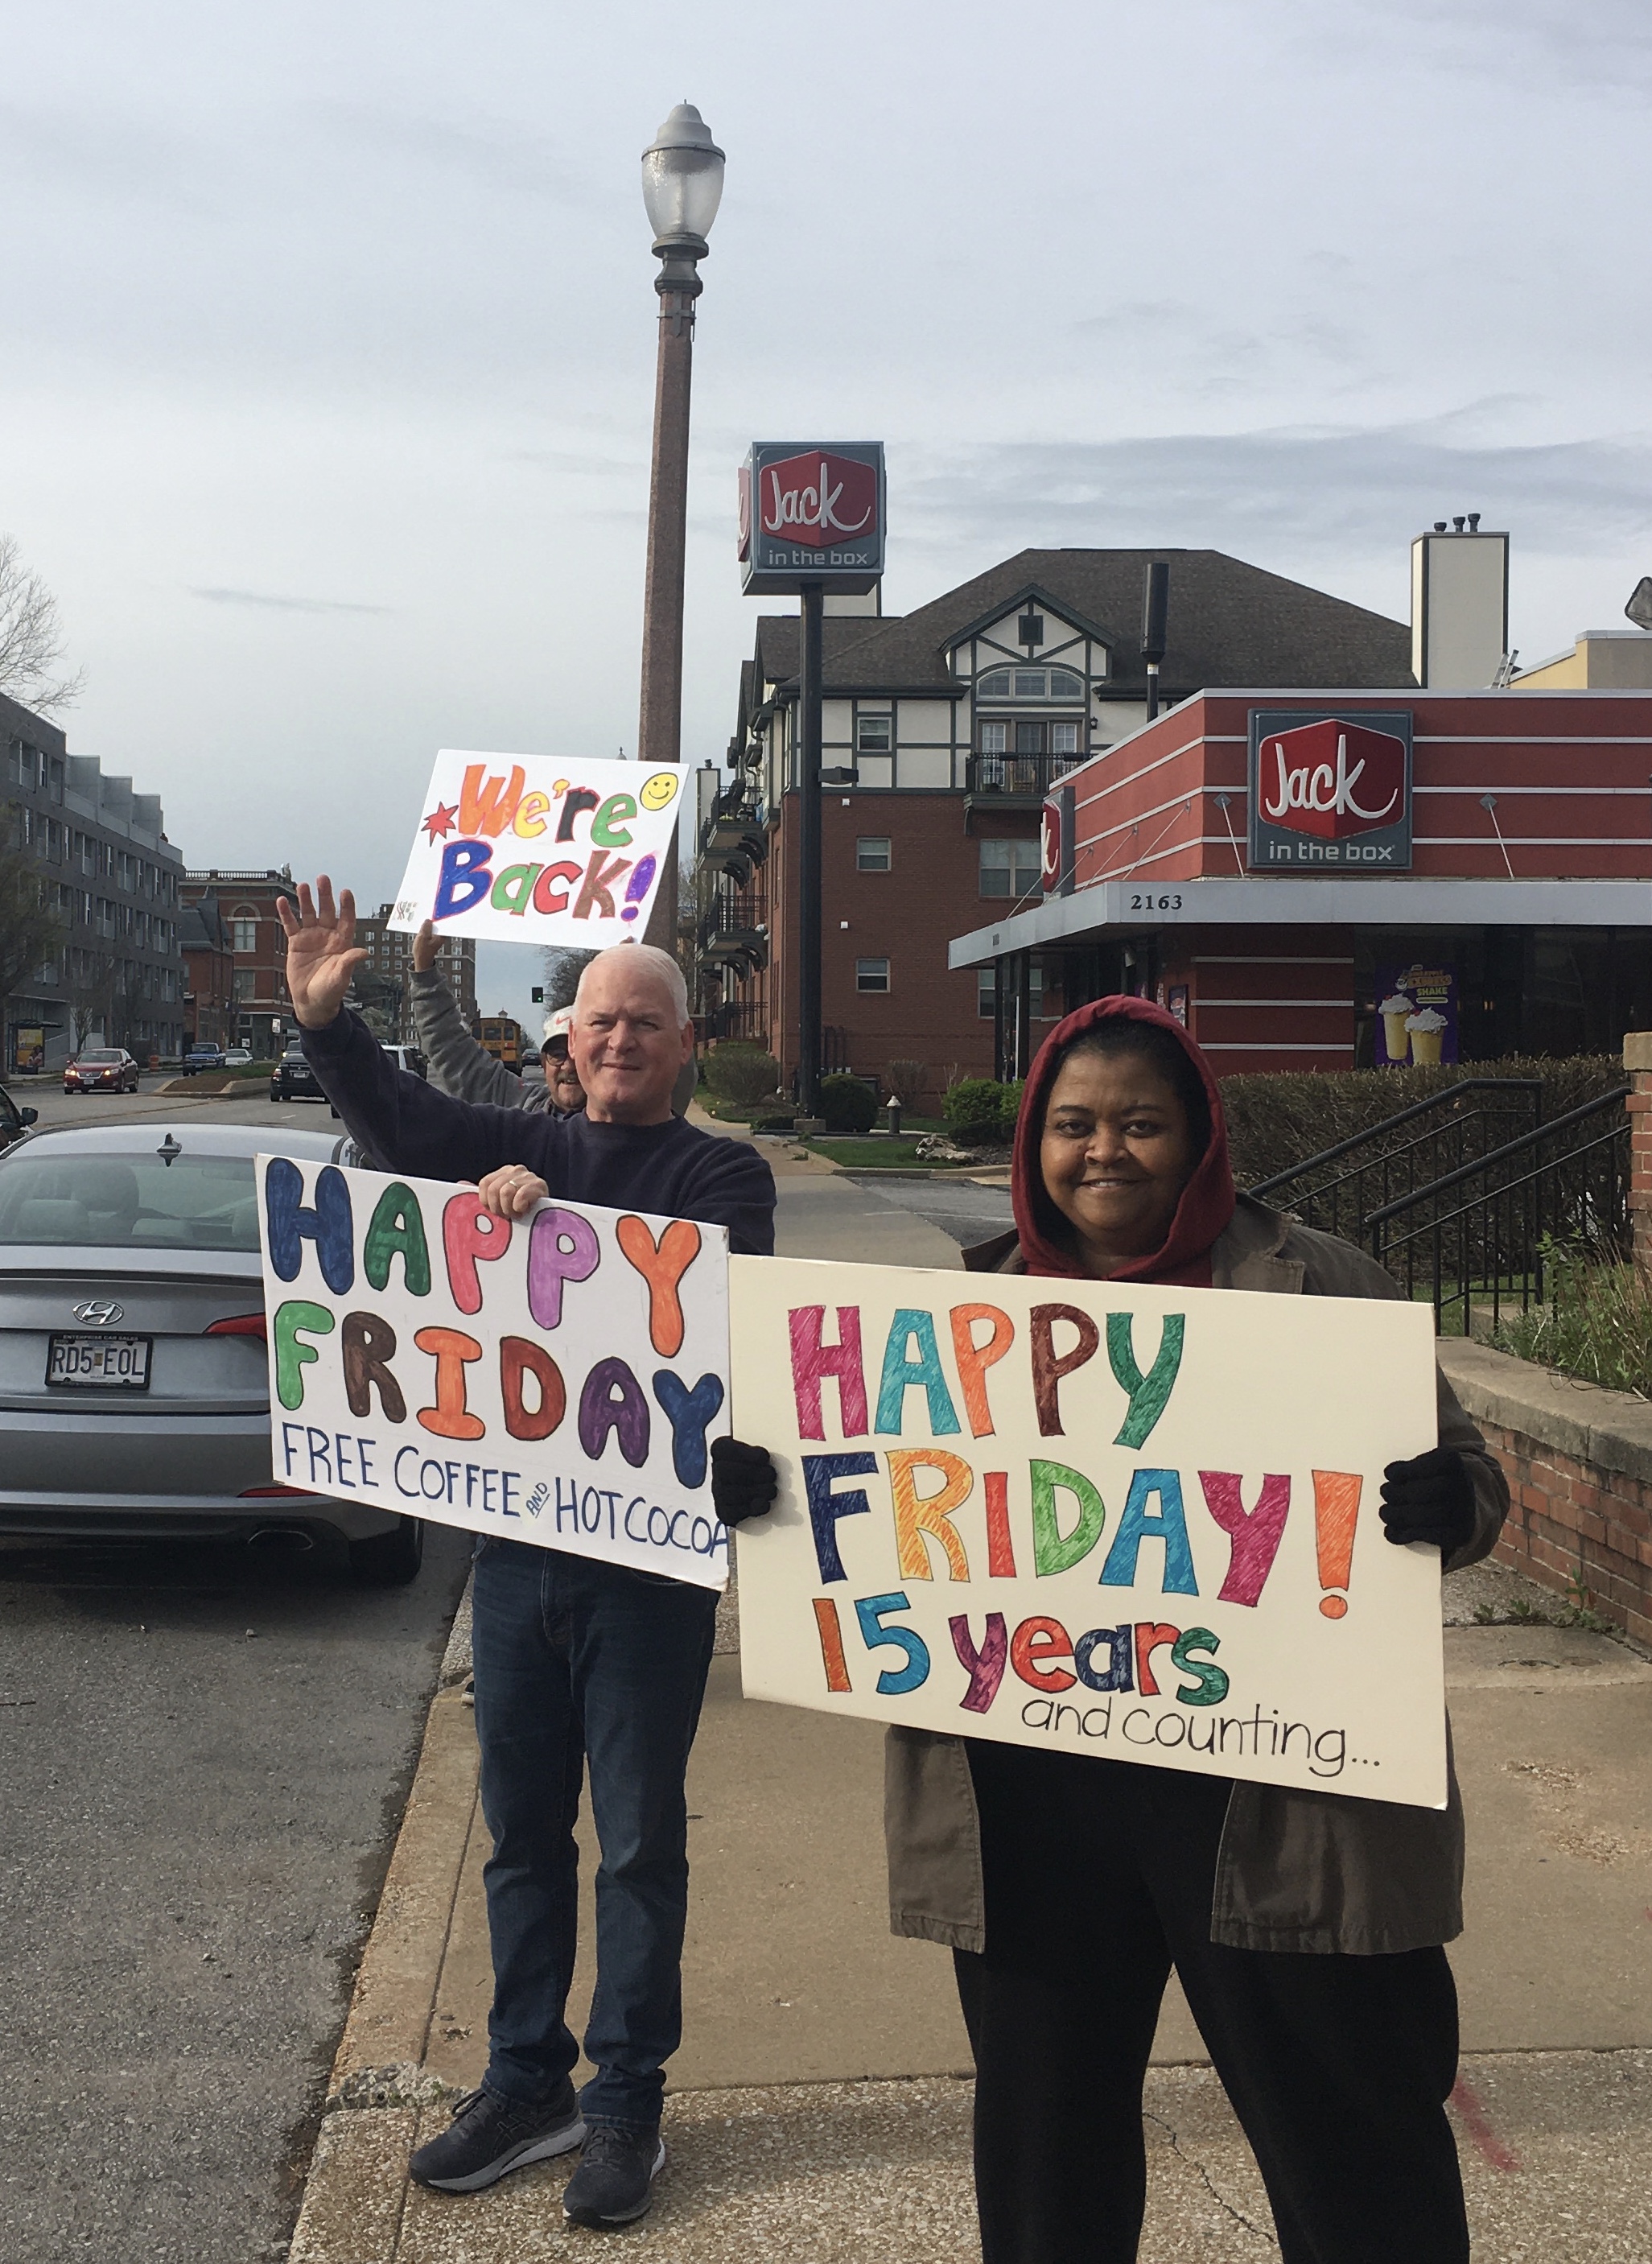 Jack
in the box
We're
Back!
Jack
in the box
2163
SHAKE
HAPPY
FRIDAY
FREE COFFEE AND HOT COCOA
HAPPY
FRIDAY!
15 years
and counting...
ENTERPRISE CAR SALES
RD5 EOL